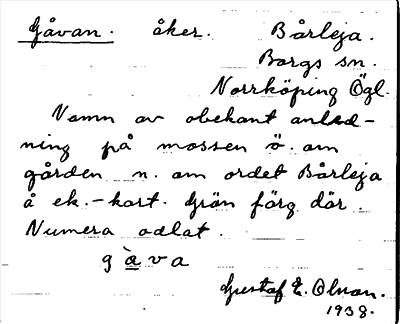 Gåvan. åker. Bårleja.
Borgs sn.
Norrköping Ögl.
Namn av obekant anled-
ning på mossen ö. om
gården n. om ordet Bårleja
å ek.-kart. Grön färg där.
Numera odlat.
gàva
Gustaf E. Olson.
1938.